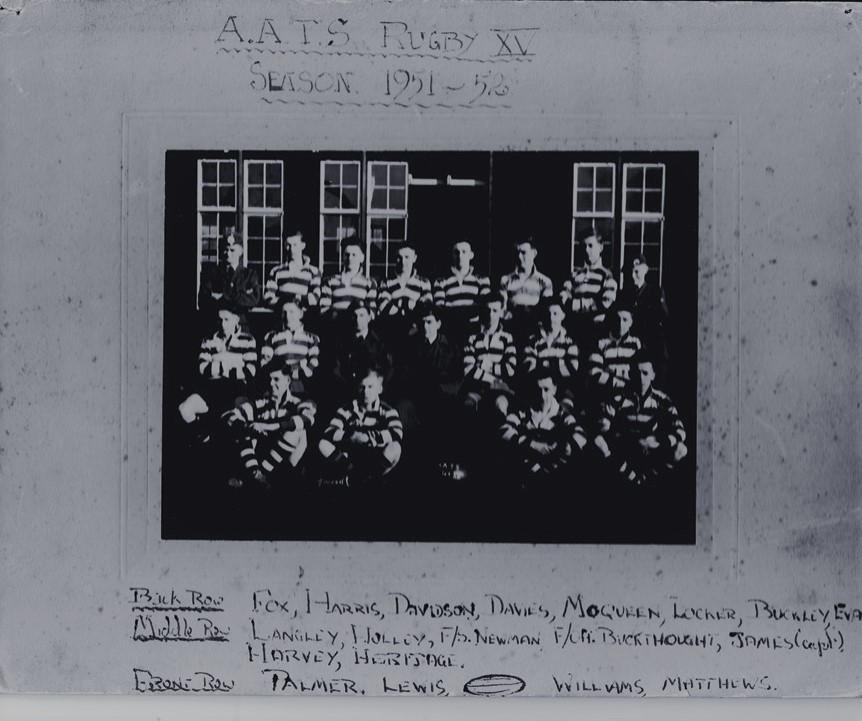 A.A.T.S. RUGBY XV
SEASON. 1951-52
Back Row FOX, HARRIS, DAVIDSON, DAVIES, MCQUEEN, LOCKER, BUCKLEY, EVA
Middle Row LANGLEY, HOLLEY, F/S. NEWMAN. F/LT. BUCKTHOUGHT, JAMES (capt),
HARVEY, HERITAGE.
Front Row PALMER. LEWIS, WILLIAMS, MATTHEWS.